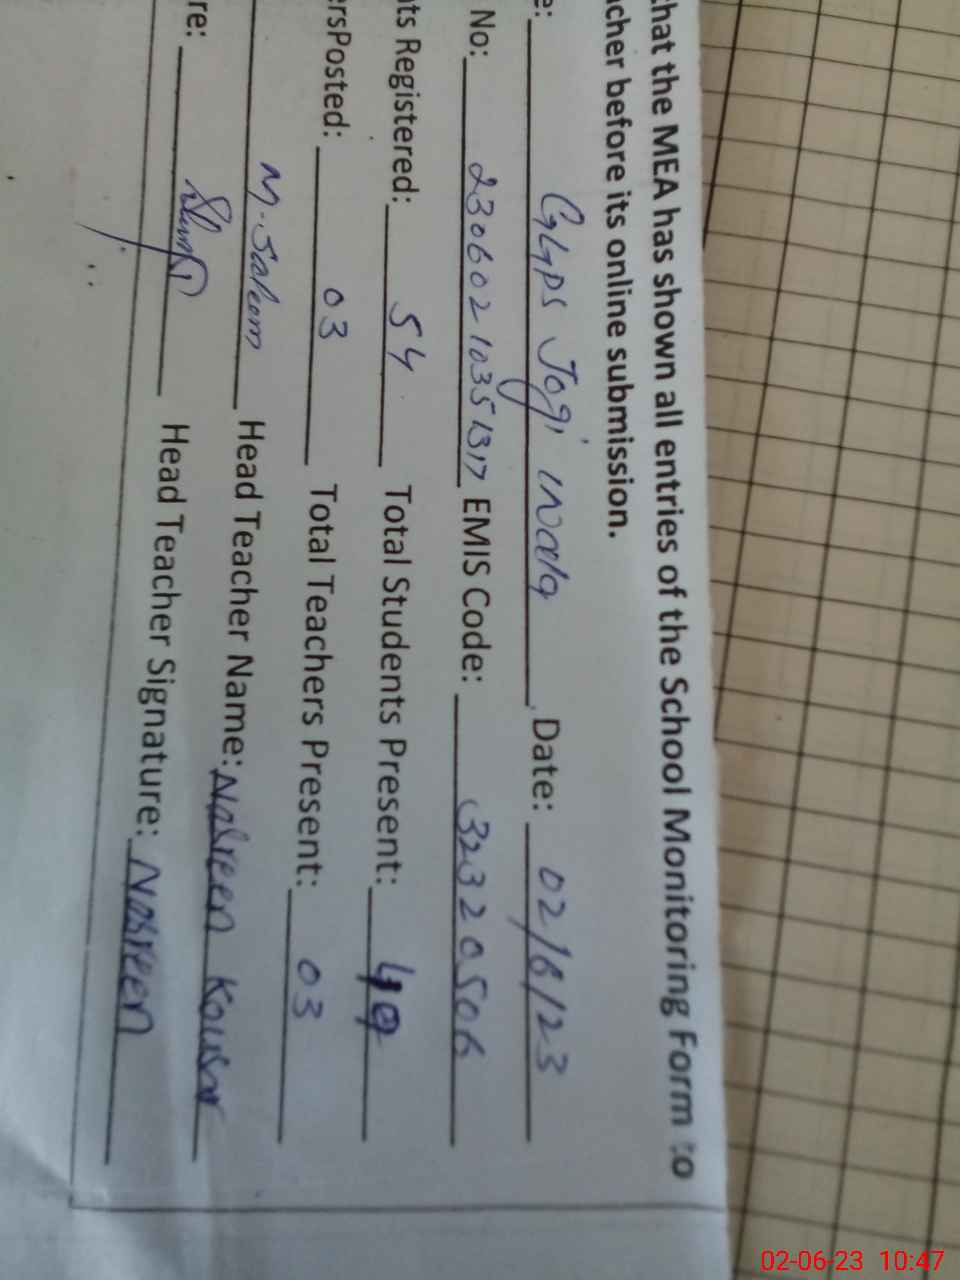 that the MEA has shown all entries of the School Monitoring Form to
acher before its online submission.
e: GGPS Jogi wala Date: 02/6/23
No: 23060210351317 EMIS Code: 32320506
nts Registered: 54 Total Students Present: 40
ersPosted: 03 Total Teachers Present: 03
M. Saleem Head Teacher Name: Nasreen Kousar
re: Head Teacher Signature: Nasreen
02-06-23 10:47